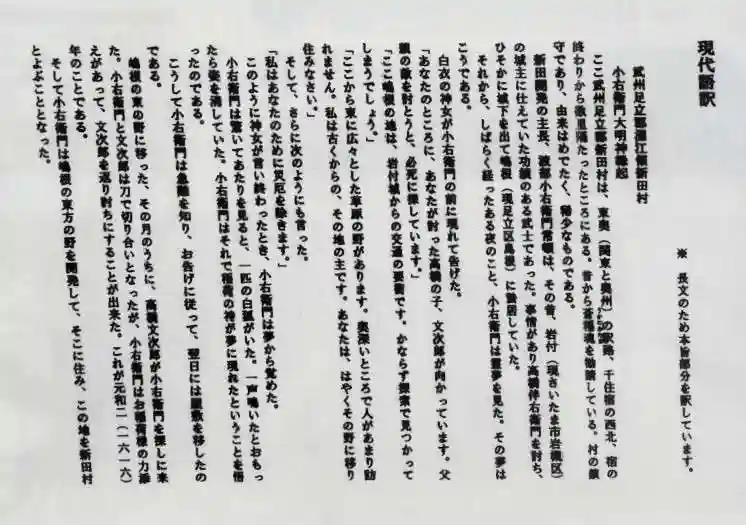 現代語訳
※ 長文のため本旨部分を訳しています。
武州足立郡淵江領新田村
小右衛門大明神縁起
ここ武州足立郡新田村は、東奥（関東と奥州）の駅路、千住宿の西北、宿の
終わりから数里隔たったところにある。昔から蒼稲魂を勧請している。村の鎮
守であり、由来はめでたく、稀少なものである。
新田開発の主長、渡部小右衛門常頓は、その昔、岩付（現さいたま市岩槻区）
の城主に仕えていた功績のある武士であった。事情があり高橋伴右衛門を討ち、
ひそかに城下を出て嶋根（現足立区島根）に蟄居していた。
それから、しばらく経ったある夜のこと、小右衛門は霊夢を見た。その夢は
こうである。
白衣の神女が小右衛門の前に現れて告げた。
「あなたのところに、あなたが討った高橋の子、文次郎が向かっています。父
親の敵を討とうと、必死に探しています。」
「ここ嶋根の地は、岩付城からの交通の要衝です。かならず探索で見つかって
しまうでしょう。」
「ここから東に広々とした草原の野があります。奥深いところで人があまり訪
れません。私は古くからの、その地の主です。あなたは、はやくその野に移り
住みなさい。」
そして、さらに次のようにも言った。
「私はあなたのために災厄を除きます。」
このように神女が言い終わったとき、小右衛門は夢から覚めた。
小右衛門は驚いてあたりを見ると、一匹の白狐がいた。一声鳴いたとおもっ
たら姿を消していた。小右衛門はそれで稲荷の神が夢に現れたということを悟
ったのである。
こうして小右衛門は危難を知り、お告げに従って、翌日には屋敷を移したの
である。
嶋根の東の野に移った、その月のうちに、高橋文次郎が小右衛門を探しに来
た。小右衛門と文次郎は刀で切り合いとなったが、小右衛門はお稲荷様の力添
えがあって、文次郎を返り討ちにすることが出来た。これが元和二（一六一六）
年のことである。
そして小右衛門は嶋根の東方の野を開発して、そこに住み、この地を新田村
とよぶこととなった。